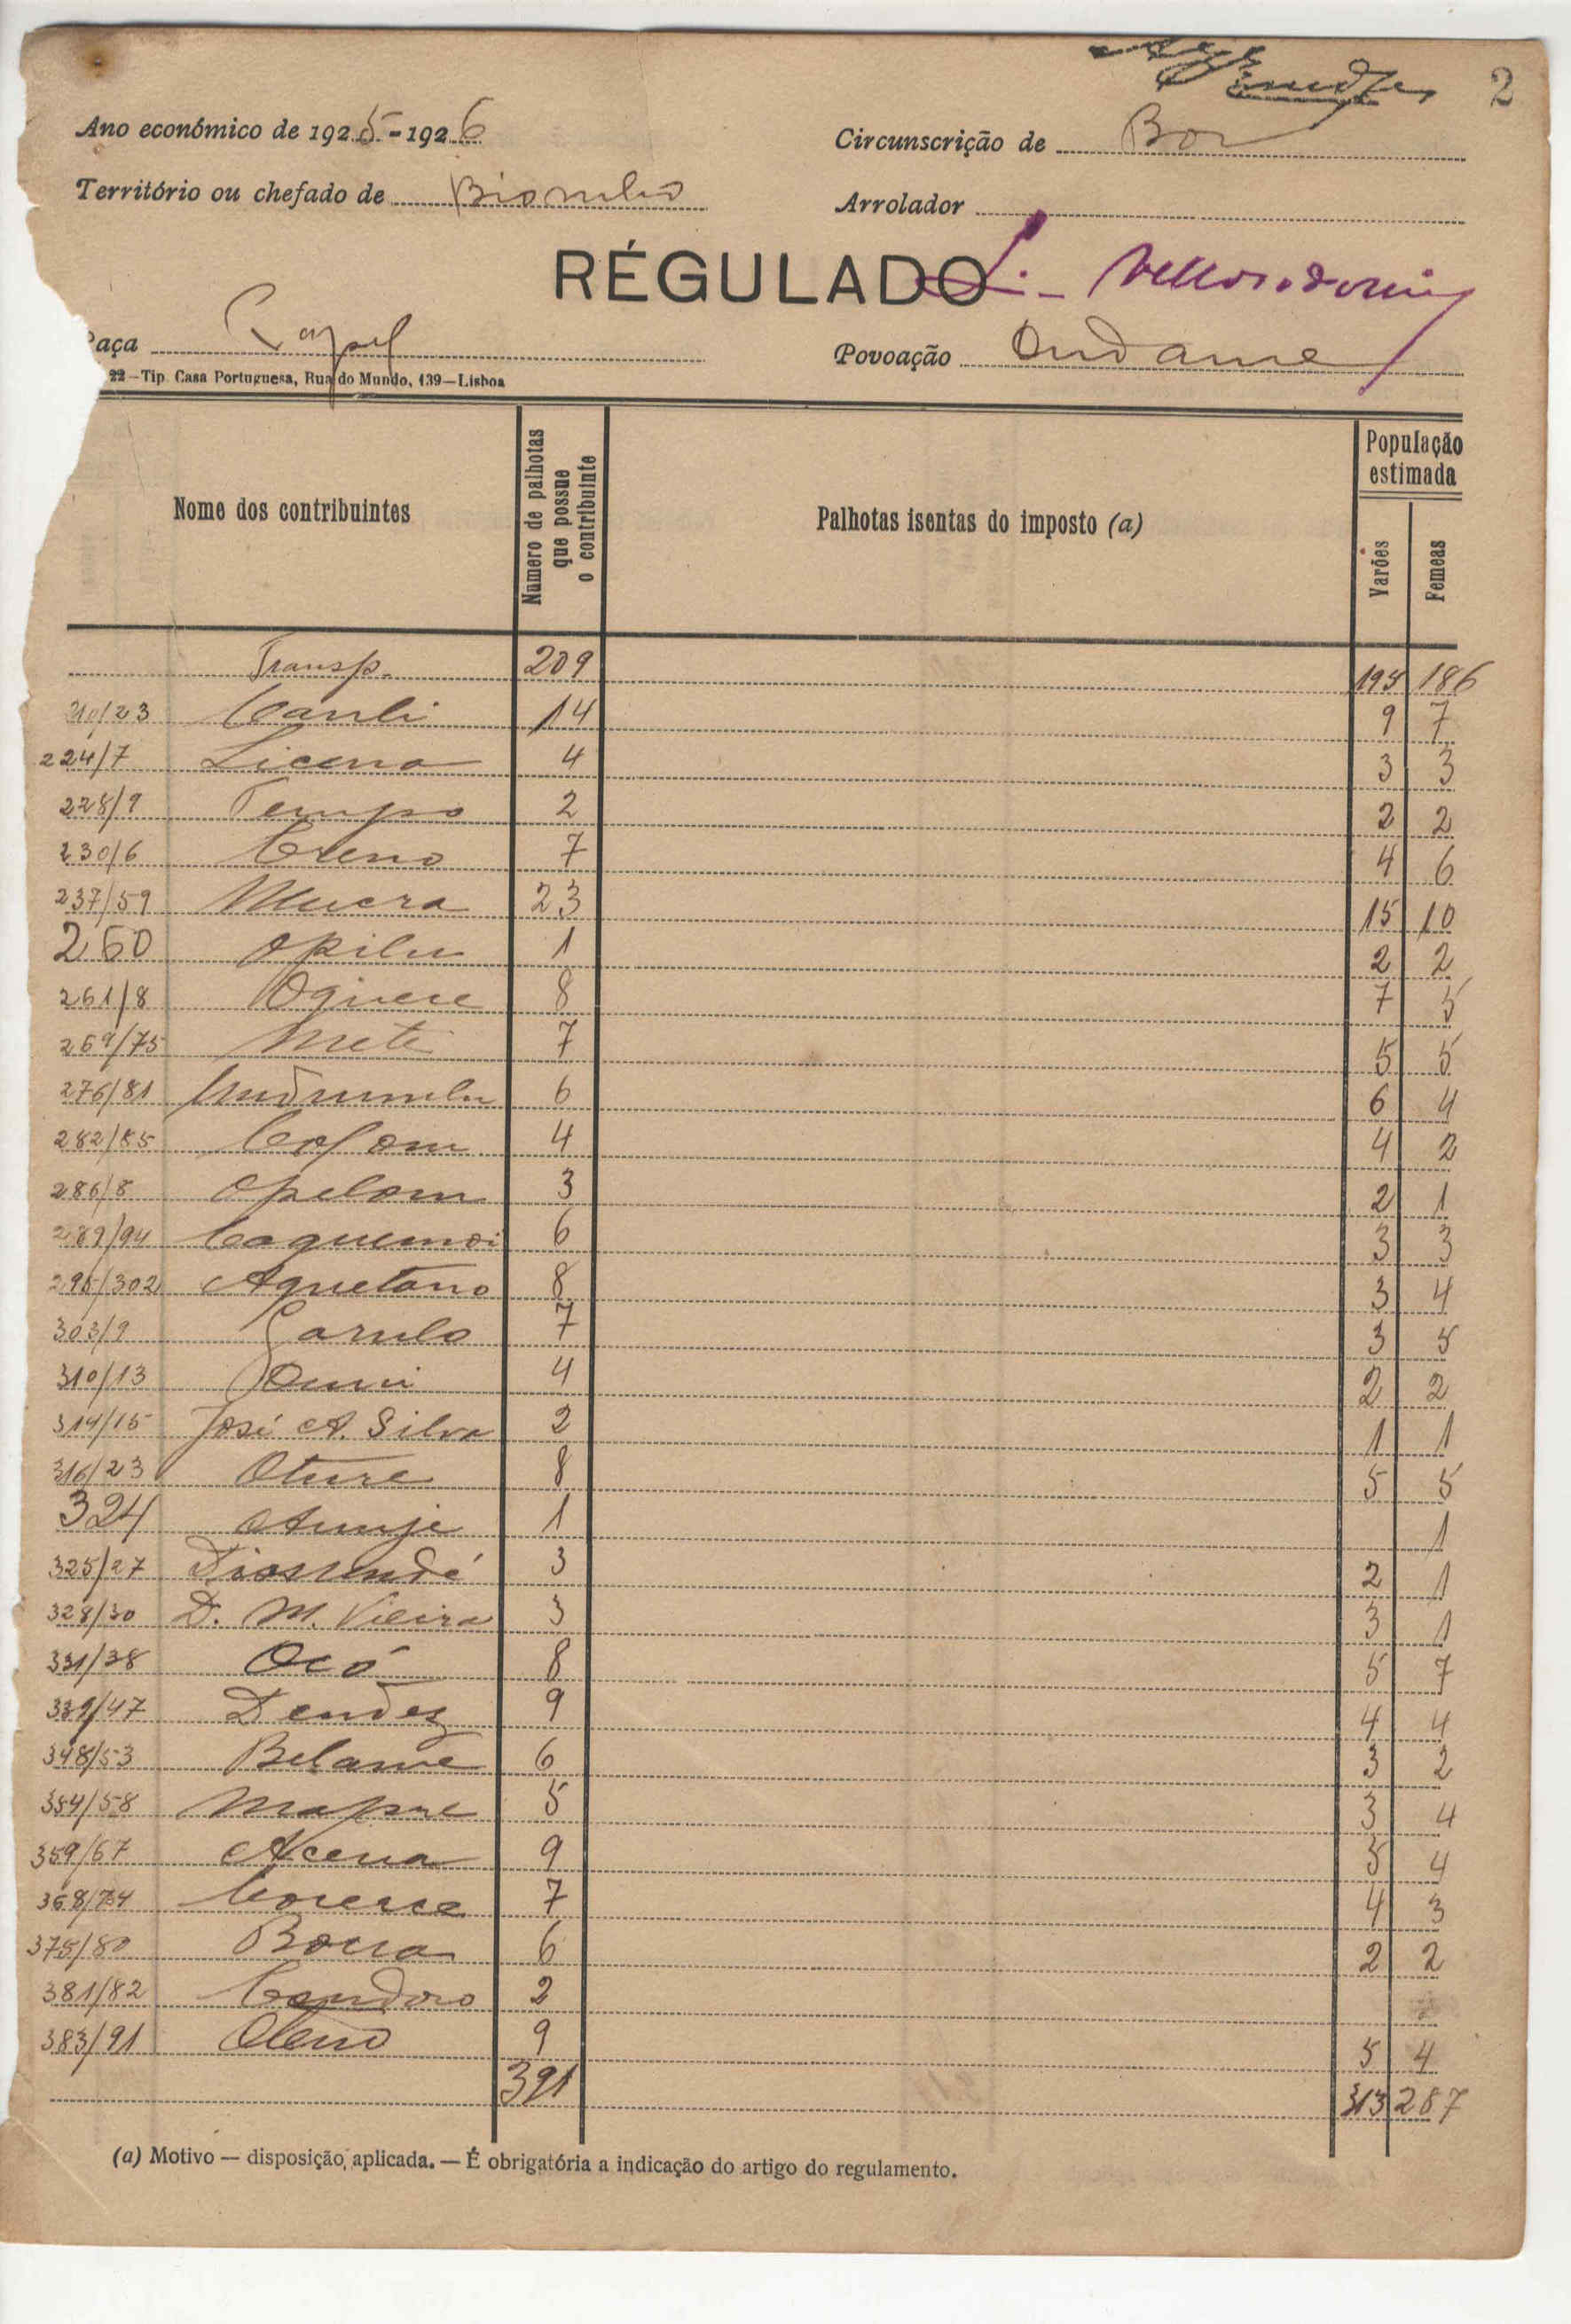 2
Ano económico de 1925-1926
Circunscrição de Bor
Território ou chefado de Biombo
Arrolador
RÉGULADO
aça Papel
Povoação Ondame
22—Tip. Casa Portuguesa, Rua do Mundo, 139—Lisboa
Nome dos contribuintes
Numero de palhotas que possue o contribuinte
Palhotas isentas do imposto (a)
População estimada
Varões
Femeas
Transp. 209 195 186
210/23 Canli 14 9 7
224/7 Licena 4 3 3
228/9 Tempo 2 2 2
230/6 Creno 7 4 6
237/59 Mucra 23 15 10
260 Opilu 1 2 2
261/8 8 7 5
269/75 Mete 7 5 5
276/81 6 6 4
282/85 4 4 2
286/8 Opelom 3 2 1
289/94 Caquemoi 6 3 3
295/302 Aquetano 8 3 4
303/9 7 3 5
310/13 4 2 2
314/15 José A. Silva 2 1 1
316/23 Oture 8 5 5
324 1 1
325/27 3 2 1
328/30 D. M. Vieira 3 3 1
331/38 Ocó 8 5 7
339/47 Dendez 9 4 4
348/53 Belame 6 3 2
354/58 Mapre 5 3 4
359/67 9 5 4
368/74 7 4 3
375/80 6 2 2
381/82 2
383/91 Oleno 9 5 4
391 313 287
(a) Motivo — disposição aplicada. — É obrigatória a indicação do artigo do regulamento.